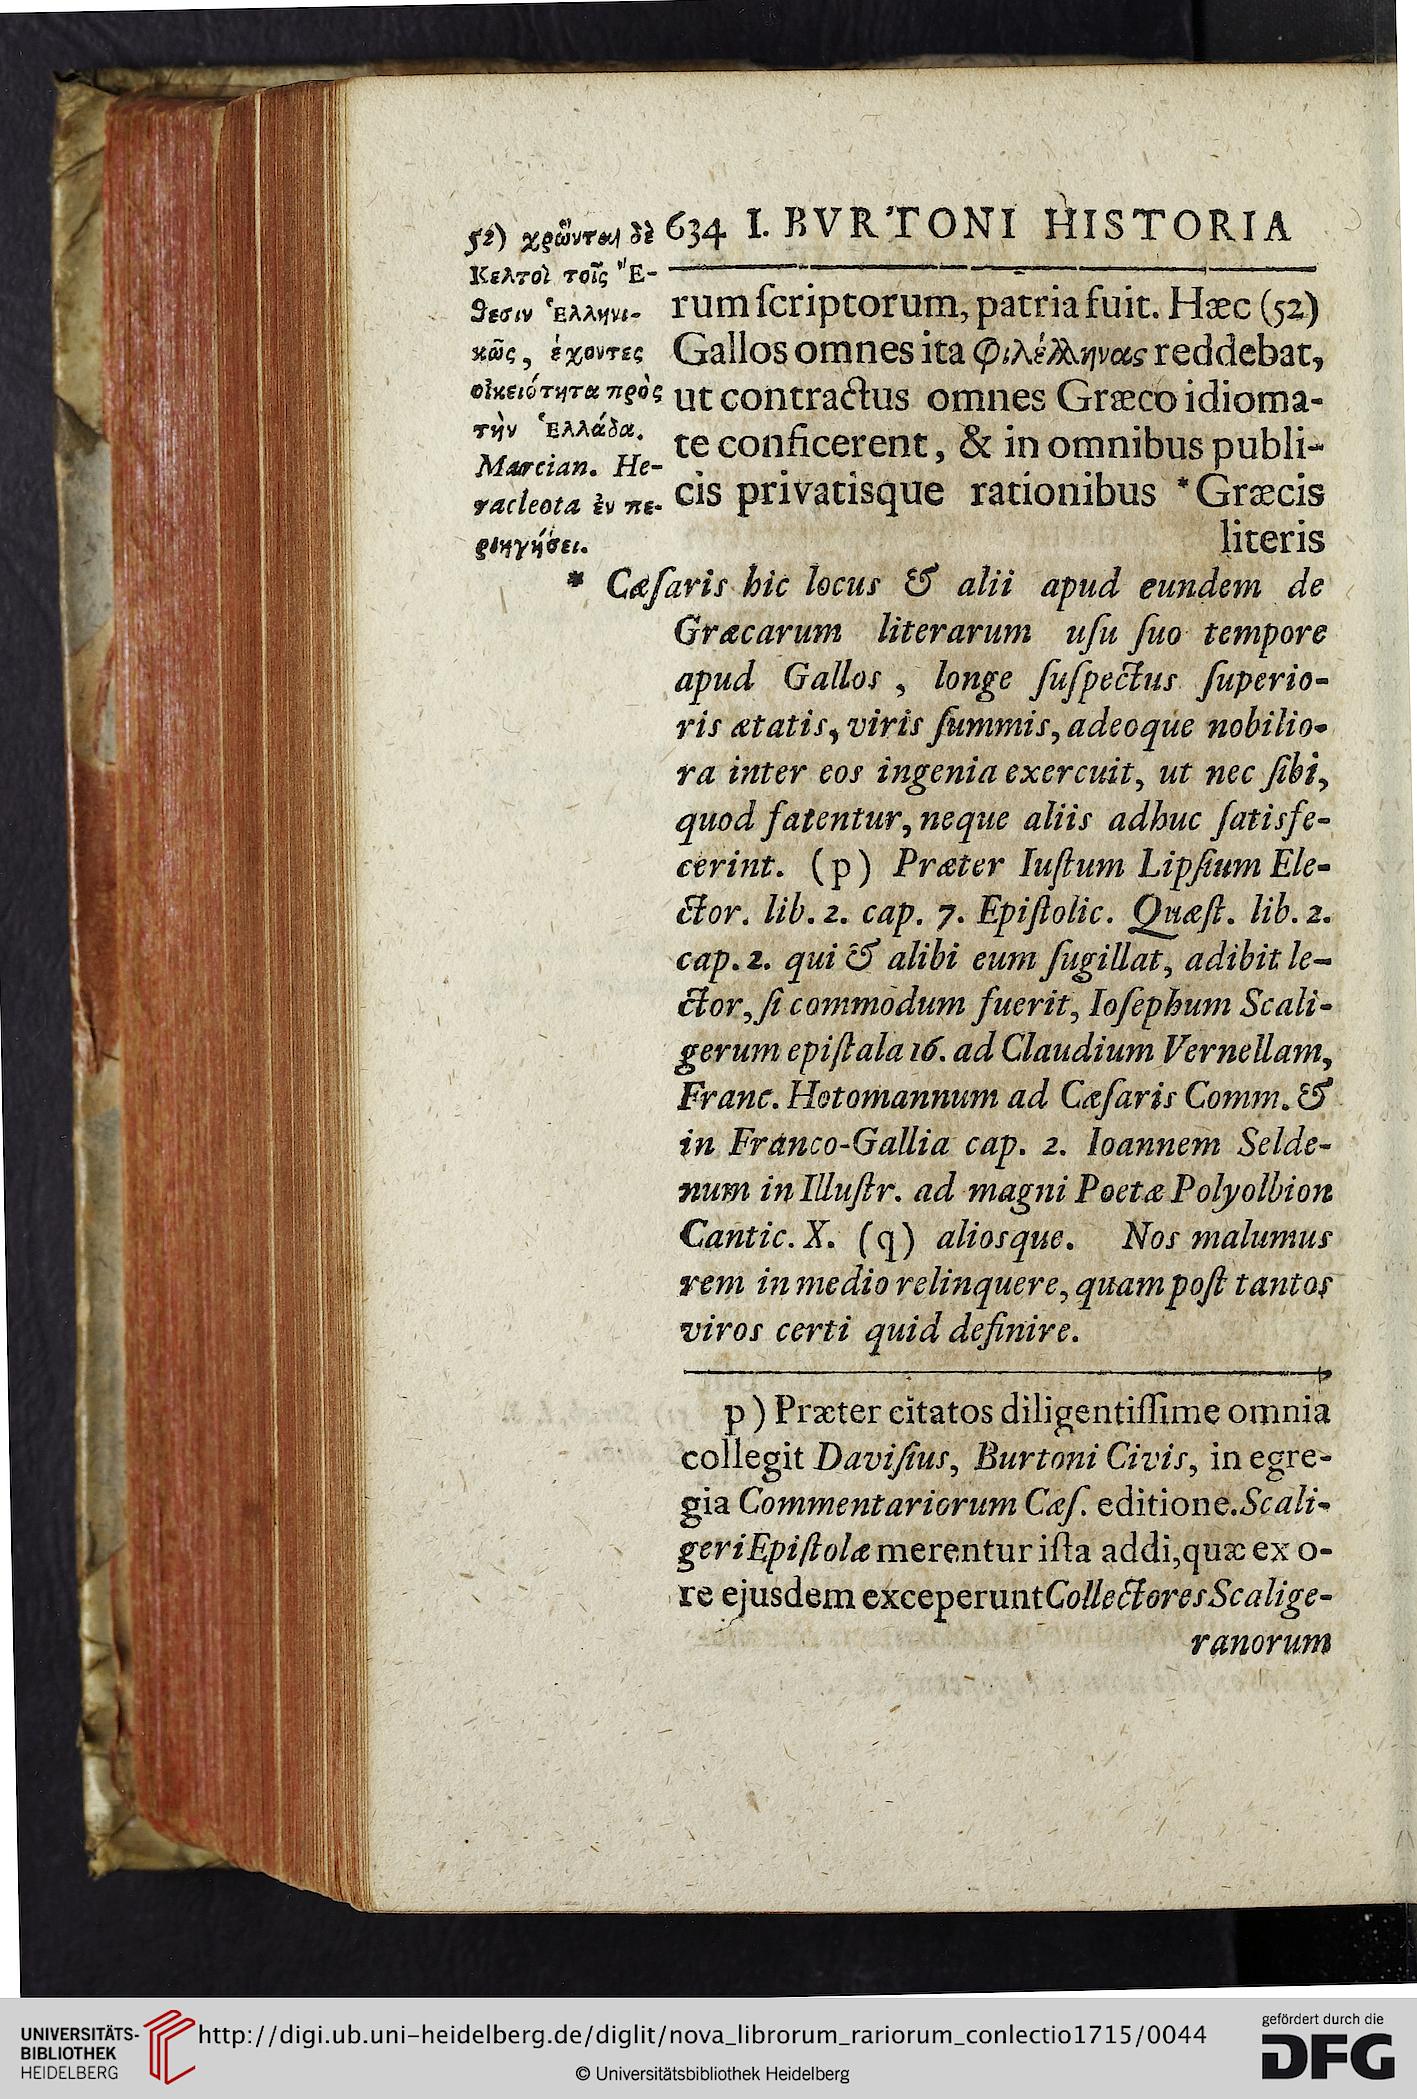 634 I. BVRTONI HISTORIA
52) χρῶνται δὲ
Κελτοὶ τοῖς Ἔ-
θεσιν Ἑλληνι-
κῶς, ἔχοντες
οἰκειότητα πρὸς
τὴν Ἑλλάδα.
Marcian. He-
racleota ἐν πε-
ριηγήσει.
rum ſcriptorum, patria fuit. Hæc (52)
Gallos omnes ita φιλέλληνας reddebat,
ut contractus omnes Græco idioma-
te conficerent, & in omnibus publi-
cis privatisque rationibus * Græcis
literis
* Cæſaris hic locus & alii apud eundem de
Græcarum literarum uſu ſuo tempore
apud Gallos, longe ſuſpectus ſuperio-
ris ætatis, viris ſummis, adeoque nobilio-
ra inter eos ingenia exercuit, ut nec ſibi,
quod fatentur, neque aliis adhuc ſatisfe-
cerint. (p) Præter Iuſtum Lipſium Ele-
ctor. lib. 2. cap. 7. Epiſtolic. Quæſt. lib. 2.
cap. 2. qui & alibi eum ſugillat, adibit le-
ctor, ſi commodum fuerit, Ioſephum Scali-
gerum epiſtala 16. ad Claudium Vernellam,
Franc. Hotomannum ad Cæſaris Comm. &
in Franco-Gallia cap. 2. Ioannem Selde-
num in Illuſtr. ad magni Poetæ Polyolbion
Cantic. X. (q) aliosque. Nos malumus
rem in medio relinquere, quam poſt tantos
viros certi quid definire.
p) Præter citatos diligentiſſime omnia
collegit Daviſius, Burtoni Civis, in egre-
gia Commentariorum Cæſ. editione. Scali-
geri Epiſtolæ merentur iſta addi, quæ ex o-
re ejusdem exceperunt Collectores Scalige-
ranorum
UNIVERSITÄTS-
BIBLIOTHEK
HEIDELBERG
http://digi.ub.uni-heidelberg.de/diglit/nova_librorum_rariorum_conlectio1715/0044
© Universitätsbibliothek Heidelberg
gefördert durch die
DFG